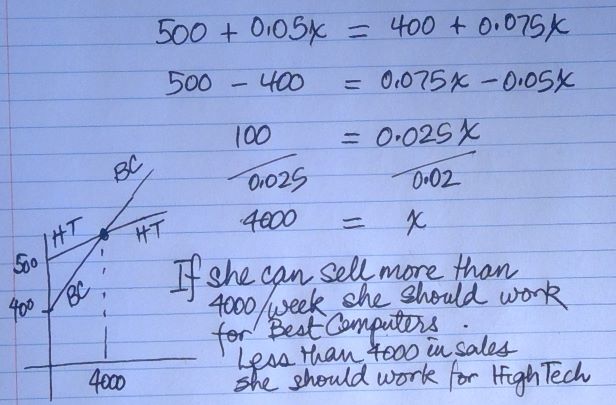 500 + 0.05x = 400 + 0.075x
500 - 400 = 0.075x - 0.05x
100 = 0.025x
0.025 0.02
4000 = x
BC
HT
HT
500
BC
400
4000
If she can sell more than
4000/week she should work
for Best Computers.
Less than 4000 in sales
she should work for HighTech